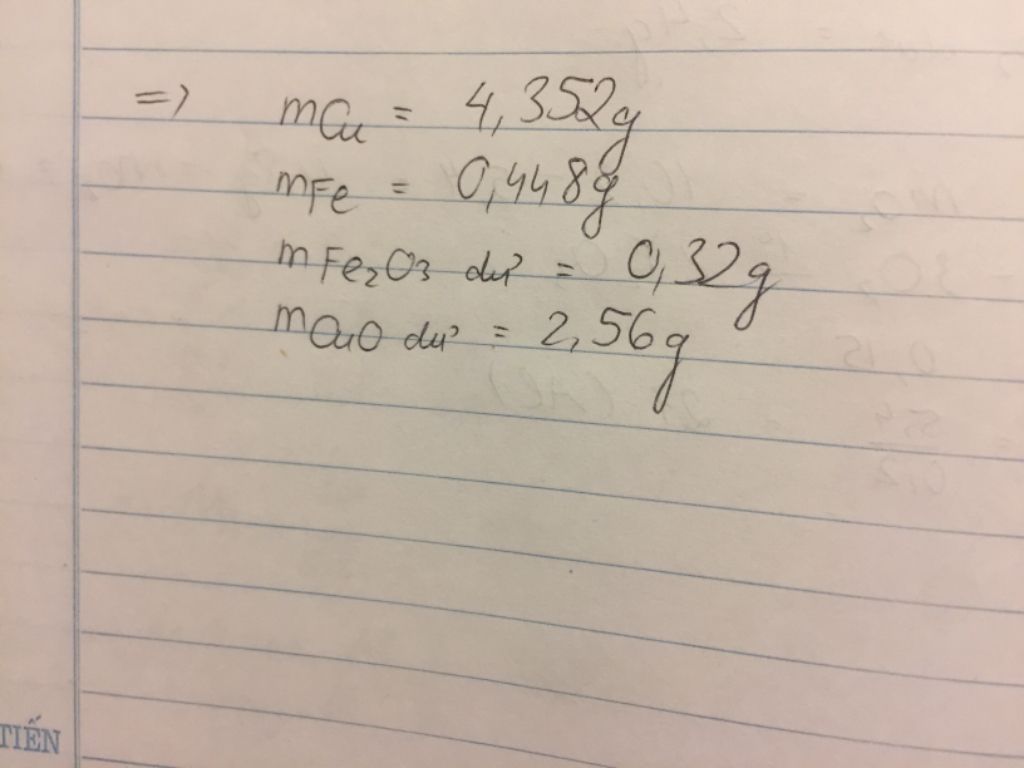 => mCu = 4,352g
mFe = 0,448g
mFe2O3 dư = 0,32g
mCuO dư = 2,56g
TIẾN